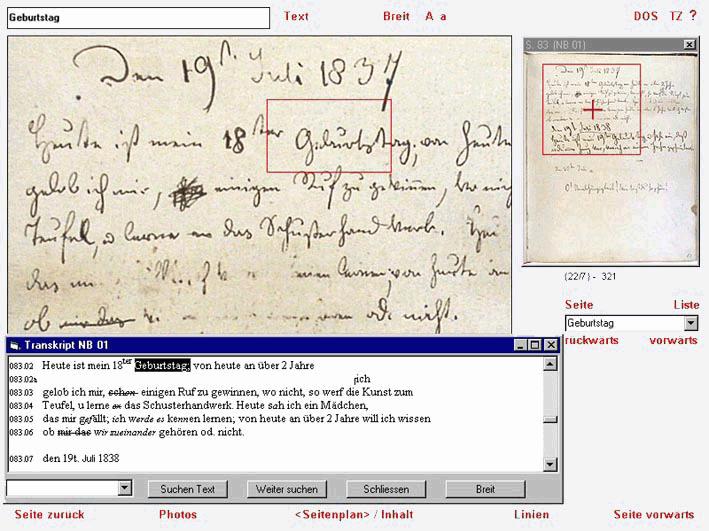 Geburtstag
Text
Breit
A a
DOS TZ ?
S. 83 (NB 01)
Den 19t Juli 1837
Heute ist mein 18ter Geburtstag, von heute
gelob ich mir, einigen Ruf zu gewinnen, wo nicht
Teufel, u lerne das Schusterhandwerk. Heu
das m
ob mir das od. nicht.
(22/7) - 321
Seite
Liste
Geburtstag
rückwärts
vorwärts
Transkript NB 01
083.02 Heute ist mein 18ter Geburtstag, von heute an über 2 Jahre
083.02a ich
083.03 gelob ich mir, schon einigen Ruf zu gewinnen, wo nicht, so werf die Kunst zum
083.04 Teufel, u lerne das Schusterhandwerk. Heute sah ich ein Mädchen,
083.05 das mir gefällt; ich werde es kennen lernen; von heute an über 2 Jahre will ich wissen
083.06 ob mir das wir zueinander gehören od. nicht.
083.07 den 19t. Juli 1838
Suchen Text
Weiter suchen
Schliessen
Breit
Seite zurück
Photos
<Seitenplan> / Inhalt
Linien
Seite vorwärts